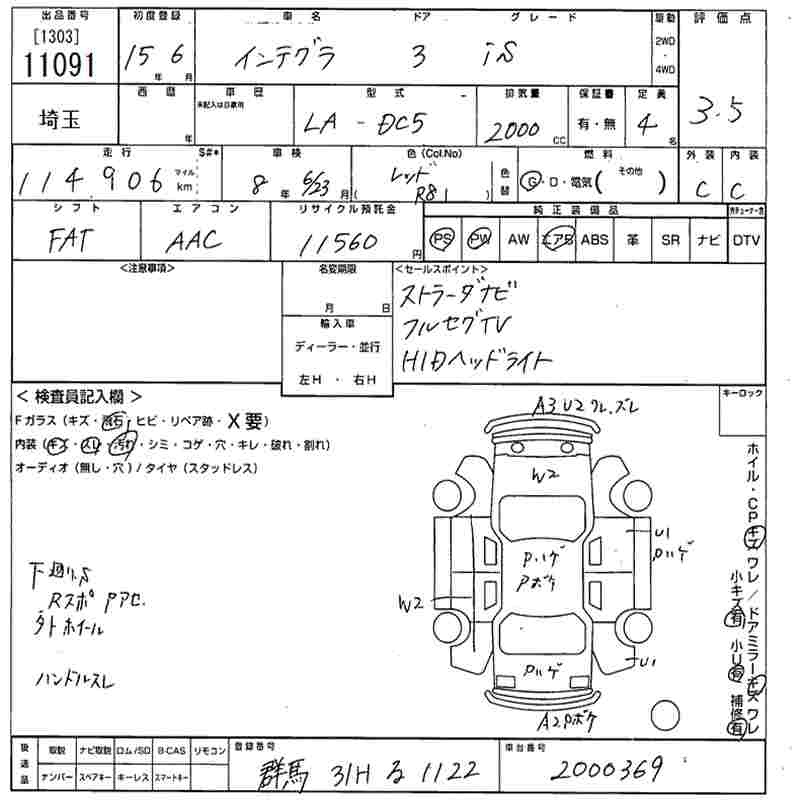 出品番号 初度登録 車名 ドア グレード 駆動 評価点
[1303]
11091 15年 6月 インテグラ 3 iS 2WD・4WD 3.5
埼玉 西暦 年 車歴 未記入は自家用 型式 LA-DC5 排気量 2000cc 保証書 有・無 定員 4名
走行 S#* 車検 色(Col.No) 色替 燃料 外装 内装
114,906 マイル km 8年 6/23月 (レッド R81) G・D・電気(その他) C C
シフト エアコン リサイクル預託金 純正装備品
FAT AAC 11560円 PS PW AW エアB ABS 革 SR ナビ DTV
<注意事項> 名変期限 <セールスポイント>
月 日 ストラーダナビ
輸入車 フルセグTV
ディーラー・並行 HIDヘッドライト
左H・右H
<検査員記入欄> キーロック
Fガラス(キズ・飛石・ヒビ・リペア跡・X要)
内装(キズ・スレ・汚れ・シミ・コゲ・穴・キレ・破れ・割れ)
オーディオ(無し・穴)/タイヤ(スタッドレス)
A3 U2 ワレ.ズレ
W2
U1
Pハゲ
Pハゲ
Pボケ
W2
U1
Pハゲ
A2Pボケ
下廻りS
Rスポ Pアセ.
外トホイール
ハンドルスレ
ホイル・CPキズワレ/ドアミラーキズワレ
小キズ有 小U有 補修有
後送品 取説 ナビ取説 ロム/SD B-CAS リモコン 登録番号 車台番号
ナンバー スペアキー キーレス スマートキー 群馬 31H る 1122 2000369